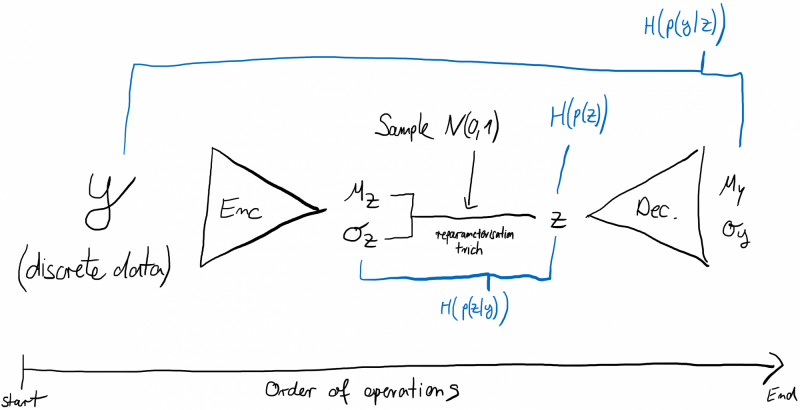 H(p(y|z))
Sample N(0,1)
H(p(z))
y
(discrete data)
Enc
μz
σz
reparametorisation
trick
z
Dec.
μy
σy
H(p(z|y))
Start
Order of operations
End